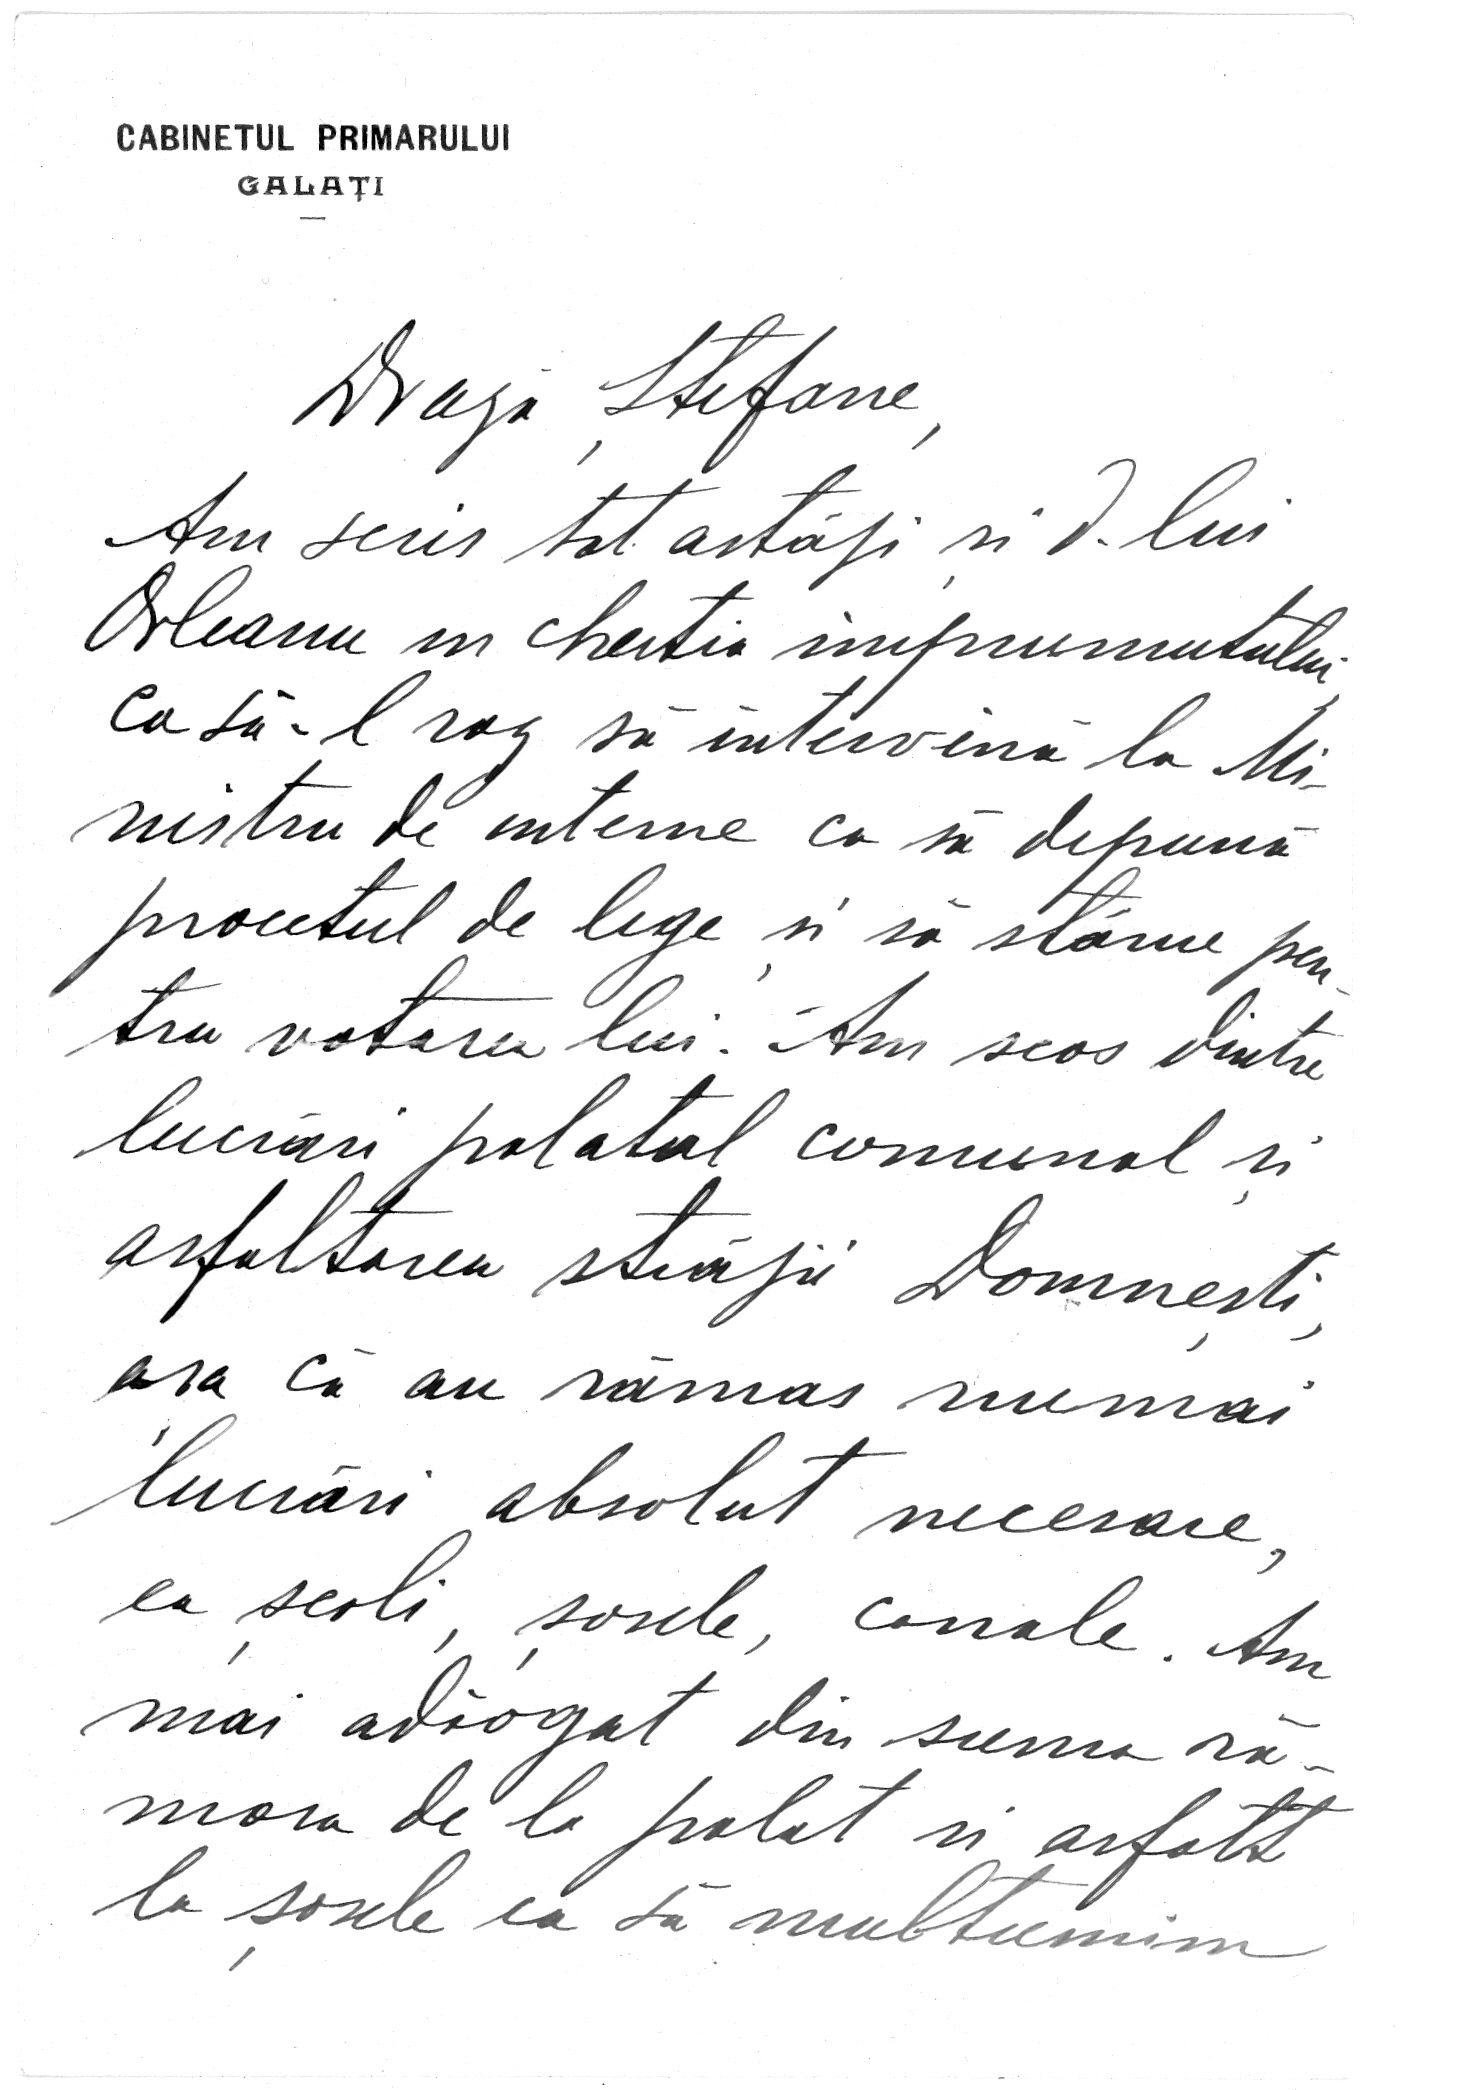 CABINETUL PRIMARULUI
GALAȚI
Dragă Ștefane,
Am scris tot astăzi și d-lui
Orleanu in chestia imprumutului,
ca să-l rog să intervină la Mi-
nistru de interne ca să depună
proectul de lege și să stărue pen-
tru votarea lui. Am scos dintre
lucrări palatul comunal și
asfaltarea străzii Domnești,
așa că au rămas numai
lucrări absolut necesare,
ca școli, șosele, canale. Am
mai adăogat din suma ră-
masa de la palat si asfalt
la șosele ca să multumim